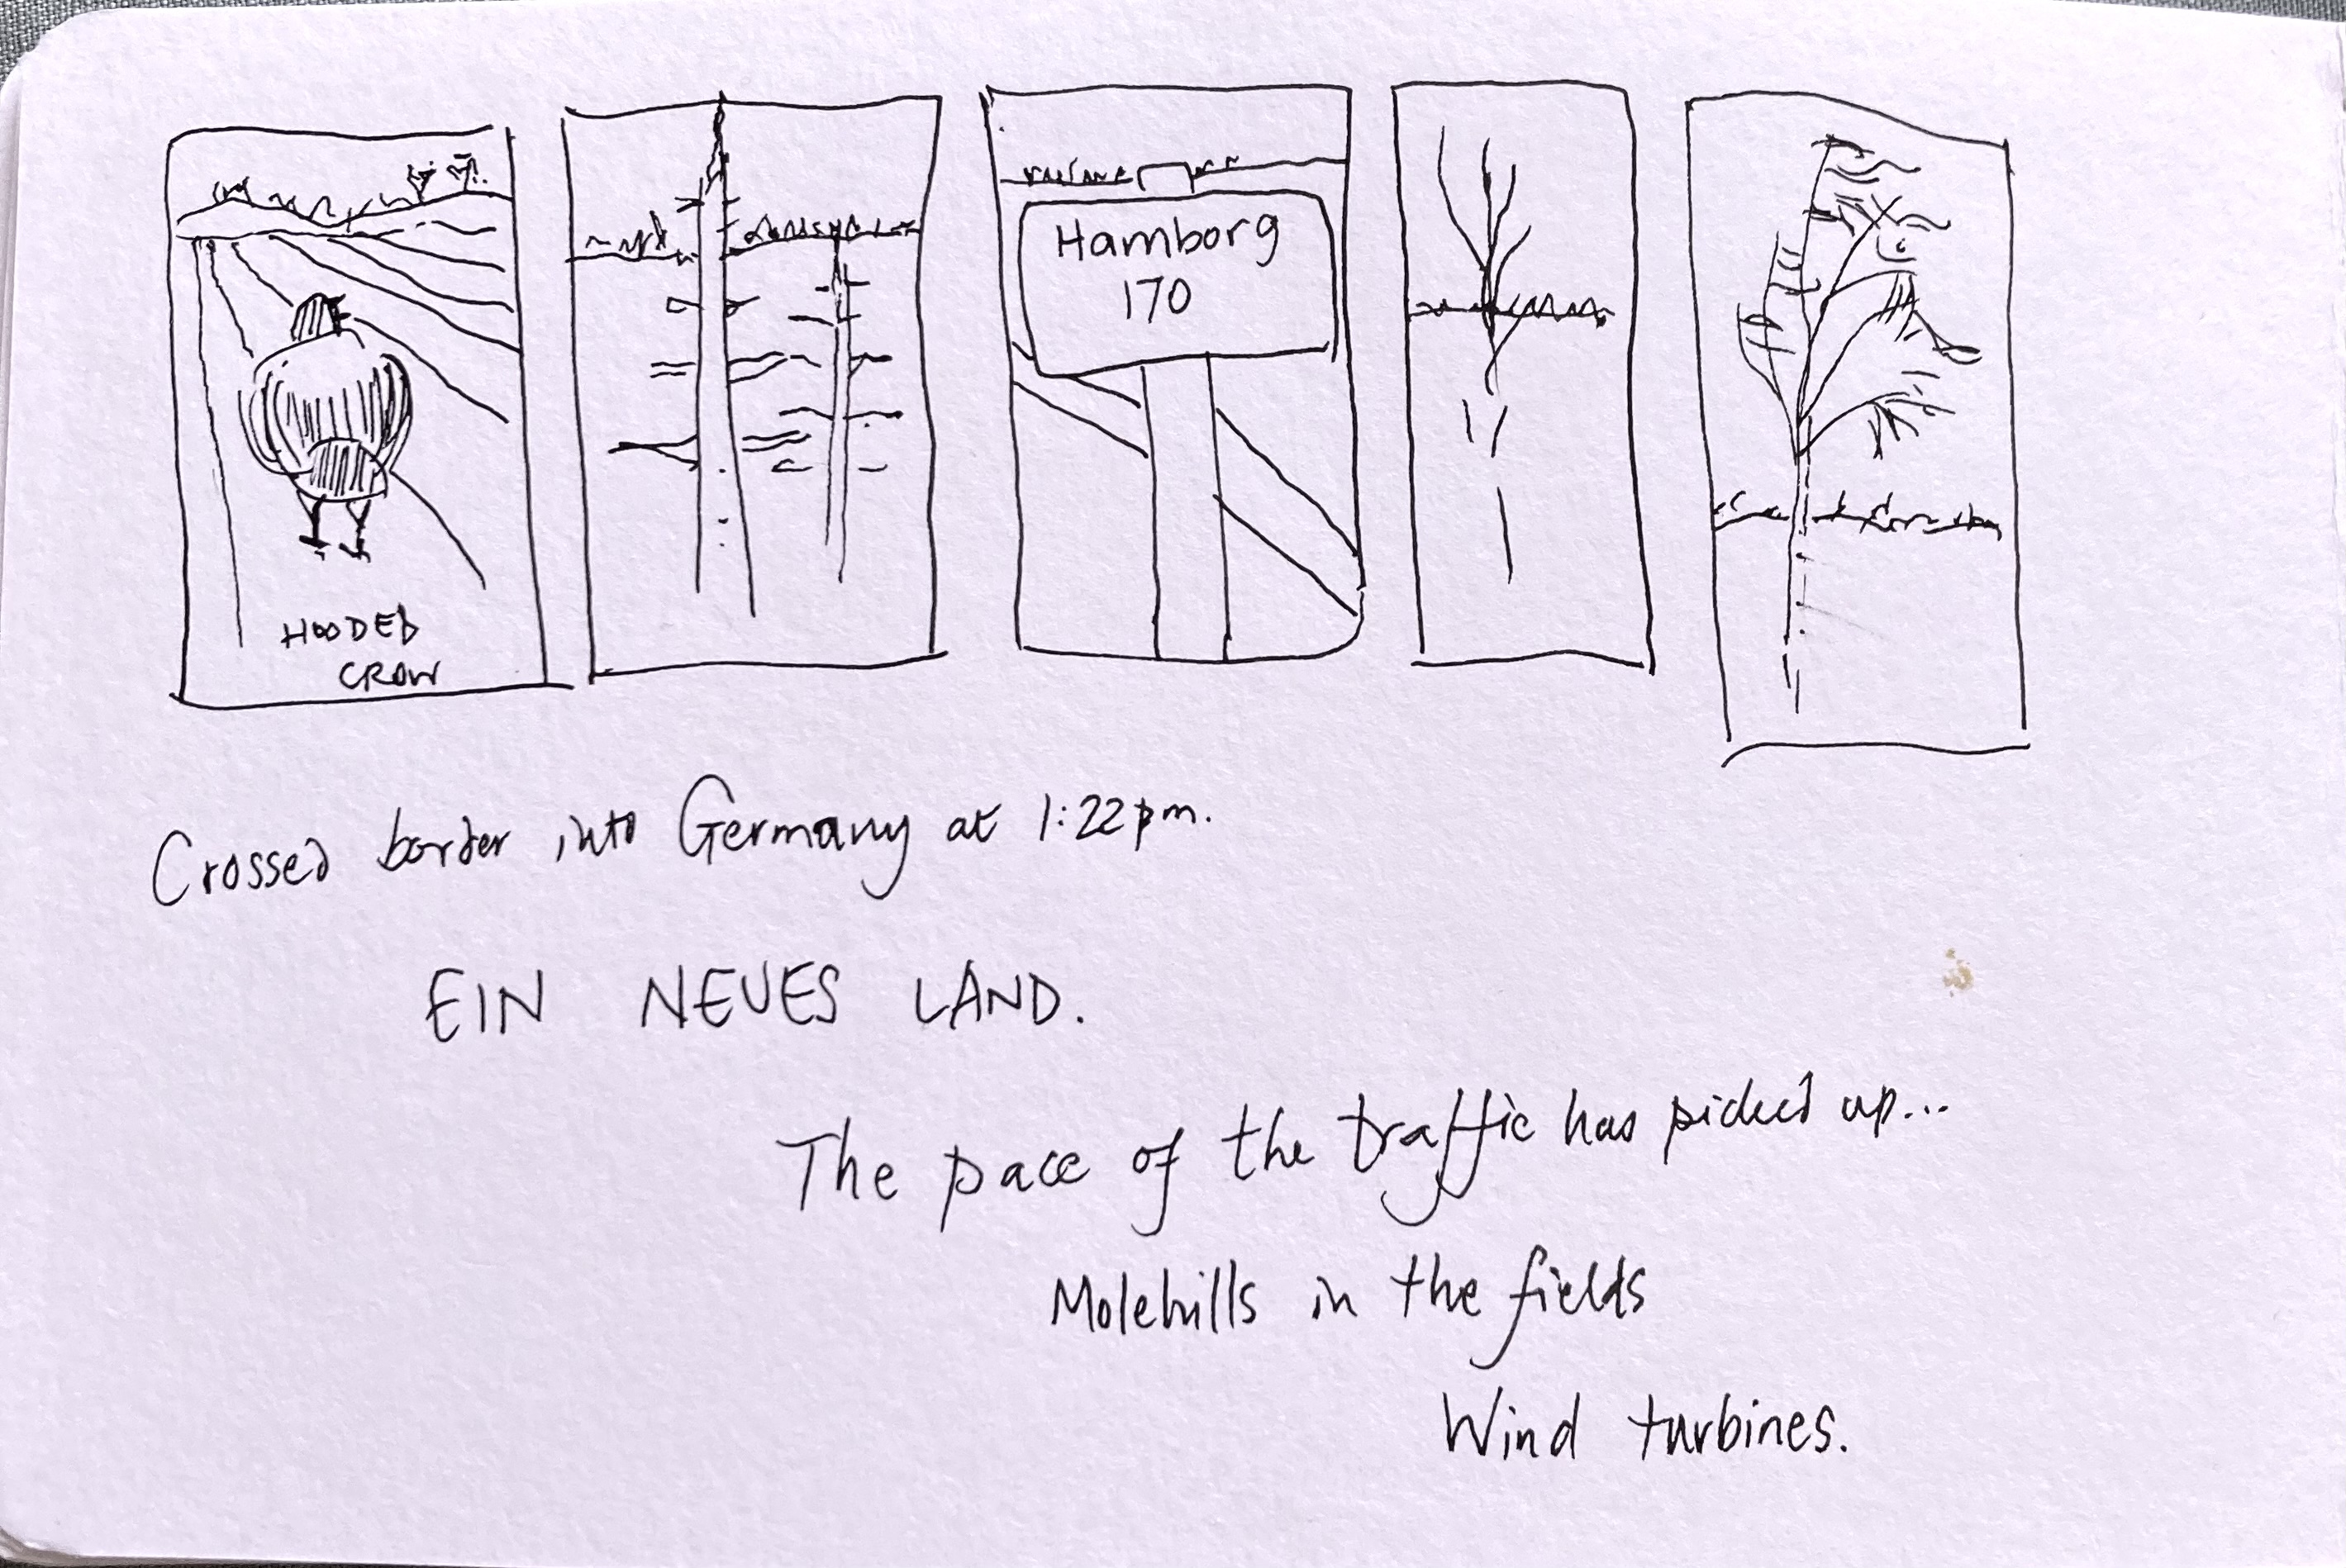 HOODED
CROW
Hamborg
170
Crossed border into Germany at 1:22pm.
EIN NEUES LAND.
The pace of the traffic has picked up...
Molehills in the fields
Wind turbines.